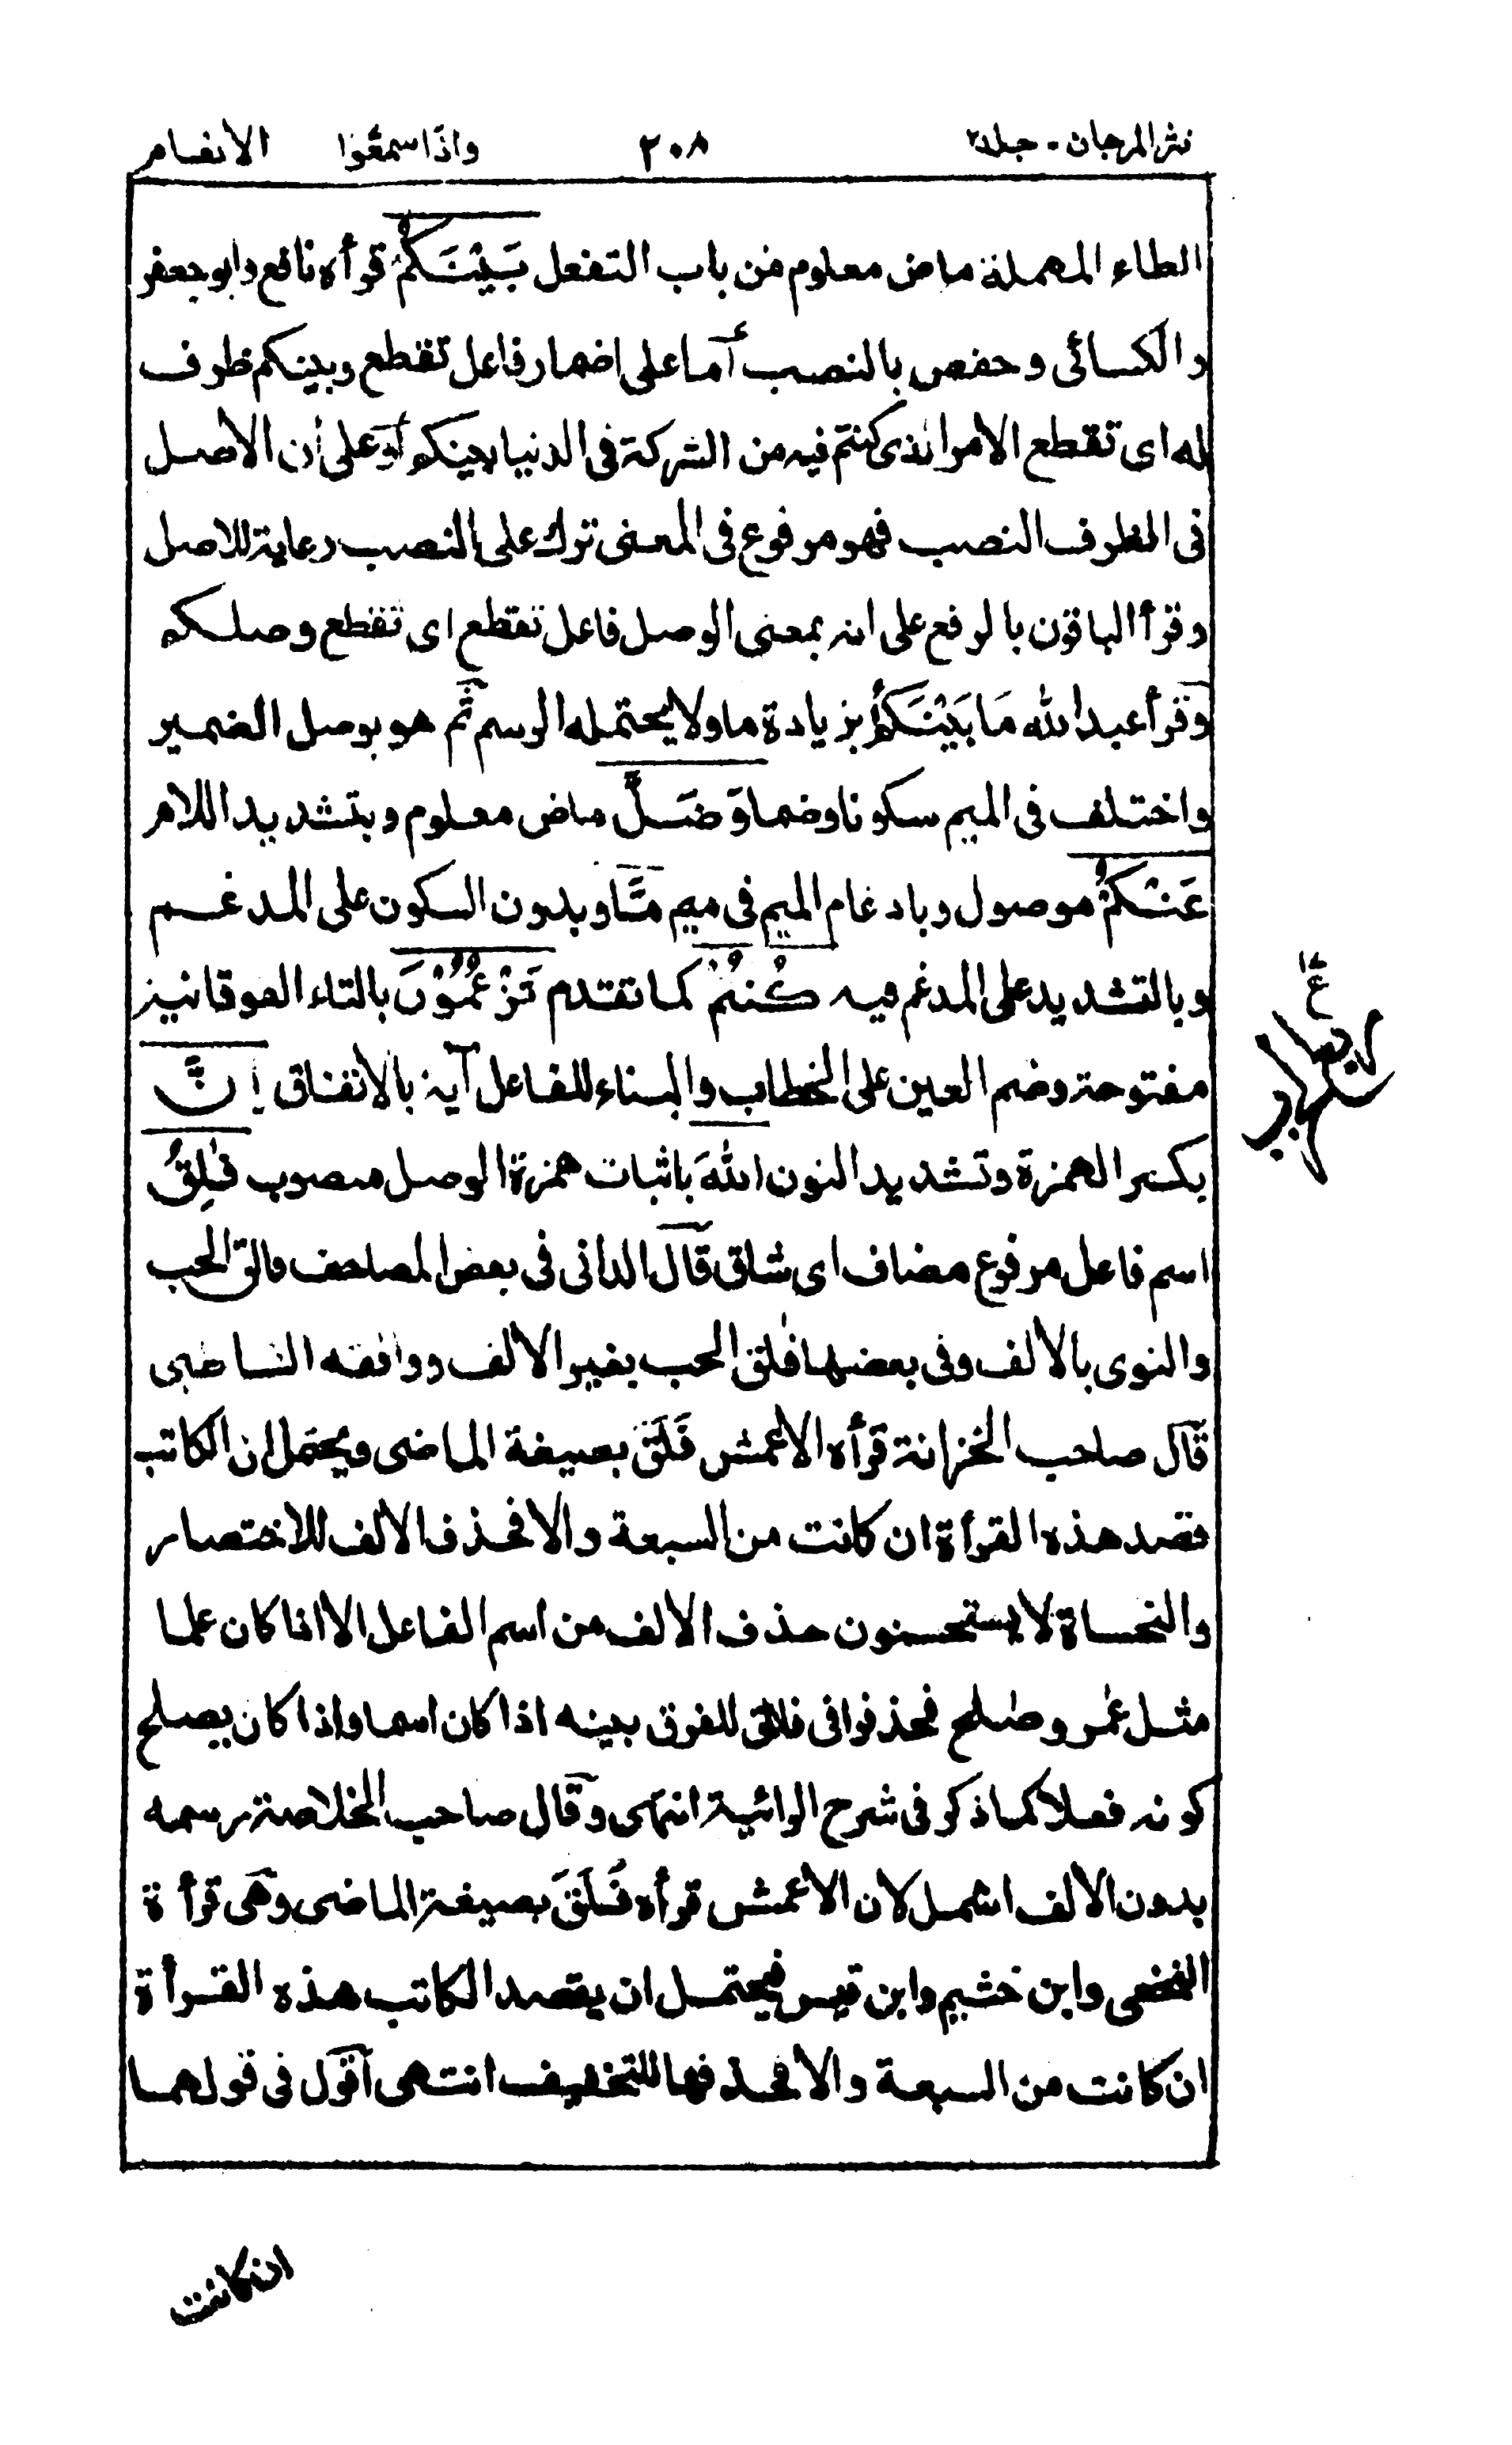 نثر المرجان - جلد ٢ ٢٠٨ واذا سمعوا الانعام
الطاء المهملة ماض معلوم من باب التفعل بَيْنَكُمْ قرأه نافع وابو جعفر
والكسائى وحفص بالنصب أما على اضمار فاعل تقطع وبينكم ظرف
له اى تقطع الامر الذى كنتم فيه من الشركة فى الدنيا بينكم او على أن الاصل
فى الظرف النصب فهو مرفوع فى المعنى ترك على النصب رعاية للاصل
وقرأ الباقون بالرفع على انه بمعنى الوصل فاعل تقطع اى تقطع وصلكم
وقرأ عبد الله مَا بَيْنَكُمْ بزيادة ما ولا يحتمله الرسم ثم هو بوصل الضمير
واختلف فى الميم سكونا وضما وَضَلَّ ماض معلوم وبتشديد اللام
عَنْكُمْ موصول وبادغام الميم فى ميم مَّا وبدون السكون على المدغم
وبالتشديد على المدغم فيه كُنْتُمْ كما تقدم تَزْعُمُوْنَ بالتاء الفوقانية
مفتوحة وضم العين على الخطاب والبناء للفاعل آية بالاتفاق إِنَّ
بكسر الهمزة وتشديد النون اللهَ باثبات همزة الوصل منصوب فٰلِقُ
اسم فاعل مرفوع مضاف اى شاق قال الدانى فى بعض المصاحف فالق الحب
والنوى بالالف وفى بعضها فٰلق الحب بغير الالف ووافقه الشاطبى
قال صاحب الخزانة قرأه الاعمش فَلَقَ بصيغة الماضى ويحتمل ان الكاتب
قصد هذه القرأة ان كانت من السبعة والا فحذف الالف للاختصار
والنحاة لا يستحسنون حذف الالف من اسم الفاعل الا اذا كان علما
مثل عٰمر وصٰلح فحذفوا فى فٰلق للفرق بينه اذا كان اسما واذا كان يصلح
كونه فعلا كما ذكر فى شرح الرائية انتهى وقال صاحب الخلاصة رسمه
بدون الالف اشمل لان الاعمش قرأه فَلَقَ بصيغة الماضى وهى قرأة
النخعى وابن خثيم وابن قيس فيحتمل ان يقصد الكاتب هذه القرأة
ان كانت من السبعة والا فحذفها للتخفيف انتهى اقول فى قولهما
ان كانت